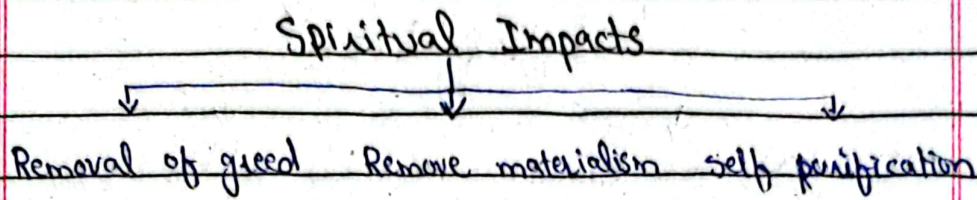 Spiritual Impacts
Removal of greed Remove materialism self purification